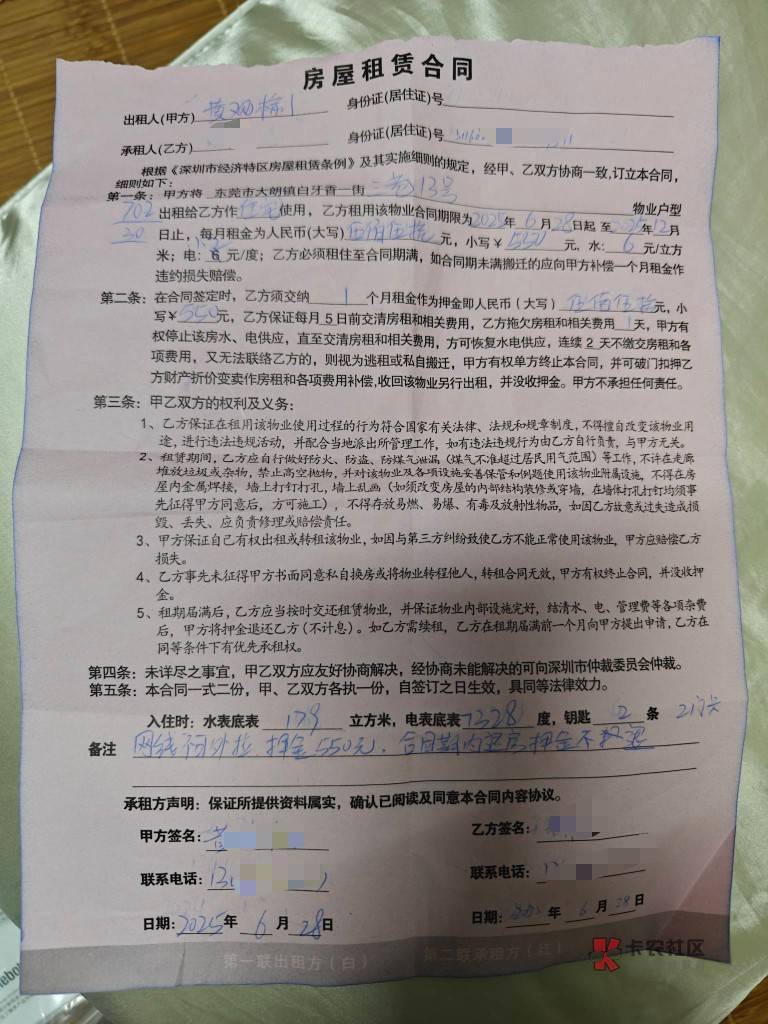 房屋租赁合同
出租人(甲方) 身份证(居住证)号
承租人(乙方) 身份证(居住证)号
根据《深圳市经济特区房屋租赁条例》及其实施细则的规定，经甲、乙双方协商一致，订立本合同，
细则如下：
第一条：甲方将 东莞市大朗镇白牙香一街 三巷13号 物业户型
702 出租给乙方作 住宅 使用，乙方租用该物业合同期限为 2025年 6 月 28 日起 至 2025年 12 月
30 日止，每月租金为人民币(大写) 伍佰伍拾 元，小写￥ 550 元，水： 6 元/立方
米；电： 元/度；乙方必须租住至合同期满，如合同期未满搬迁的应向甲方补偿一个月租金作
违约损失赔偿。
第二条：在合同签定时，乙方须交纳 1 个月租金作为押金即人民币（大写） 伍佰伍拾 元，小
写￥ 550 元，乙方保证每月 5 日前交清房租和相关费用，乙方拖欠房租和相关费用 1 天，甲方有
权停止该房水、电供应，直至交清房租和相关费用，方可恢复水电供应，连续 2 天不缴交房租和各
项费用，又无法联络乙方的，则视为逃租或私自搬迁，甲方有权单方终止本合同，并可破门扣押乙
方财产折价变卖作房租和各项费用补偿，收回该物业另行出租，并没收押金。甲方不承担任何责任。
第三条：甲乙双方的权利及义务：
1、乙方保证在租用该物业使用过程的行为符合国家有关法律、法规和规章制度，不得擅自改变该物业用
途，进行违法违规活动，并配合当地派出所管理工作，如有违法违规行为由乙方自行负责，与甲方无关。
2、租赁期间，乙方应自行做好防火、防盗、防煤气泄漏（煤气不准超过居民用气范围）等工作，不许在走廊
堆放垃圾或杂物，禁止高空抛物，并对该物业及各项设施妥善保管和例题使用该物业附属设施，不得在房
屋内金属焊接，墙上打钉打孔，墙上乱画（如须改变房屋的内部结构装修或穿墙，在墙体打孔打钉均须事
先征得甲方同意后，方可施工），不得存放易燃、易爆、有毒及放射性物品，如因乙方故意或过失造成损
毁、丢失、应负责修理或赔偿责任。
3、甲方保证自己有权出租或转租该物业，如因与第三方纠纷致使乙方不能正常使用该物业，甲方应赔偿乙方
损失。
4、乙方事先未征得甲方书面同意私自换房或将物业转程他人，转租合同无效，甲方有权终止合同，并没收押
金。
5、租期届满后，乙方应当按时交还租赁物业，并保证物业内部设施完好，结清水、电、管理费等各项杂费
后，甲方将押金退还乙方（不计息）。如乙方需续租，乙方在租期届满前一个月向甲方提出申请，乙方在
同等条件下有优先承租权。
第四条：未详尽之事宜，甲乙双方应友好协商解决，经协商未能解决的可向深圳市仲裁委员会仲裁。
第五条：本合同一式二份，甲、乙双方各执一份，自签订之日生效，具同等法律效力。
入住时：水表底表 179 立方米，电表底表 7328 度，钥匙 2 条 2门卡
备注 网线 外拉 押金550元，合同期内退房押金不退
承租方声明：保证所提供资料属实，确认已阅读及同意本合同内容协议。
甲方签名： 乙方签名：
联系电话： 联系电话：
日期：2025年 6 月 28日 日期：2025年 6 月 28日
第一联出租方（白） 第二联承租方（红）
卡农社区